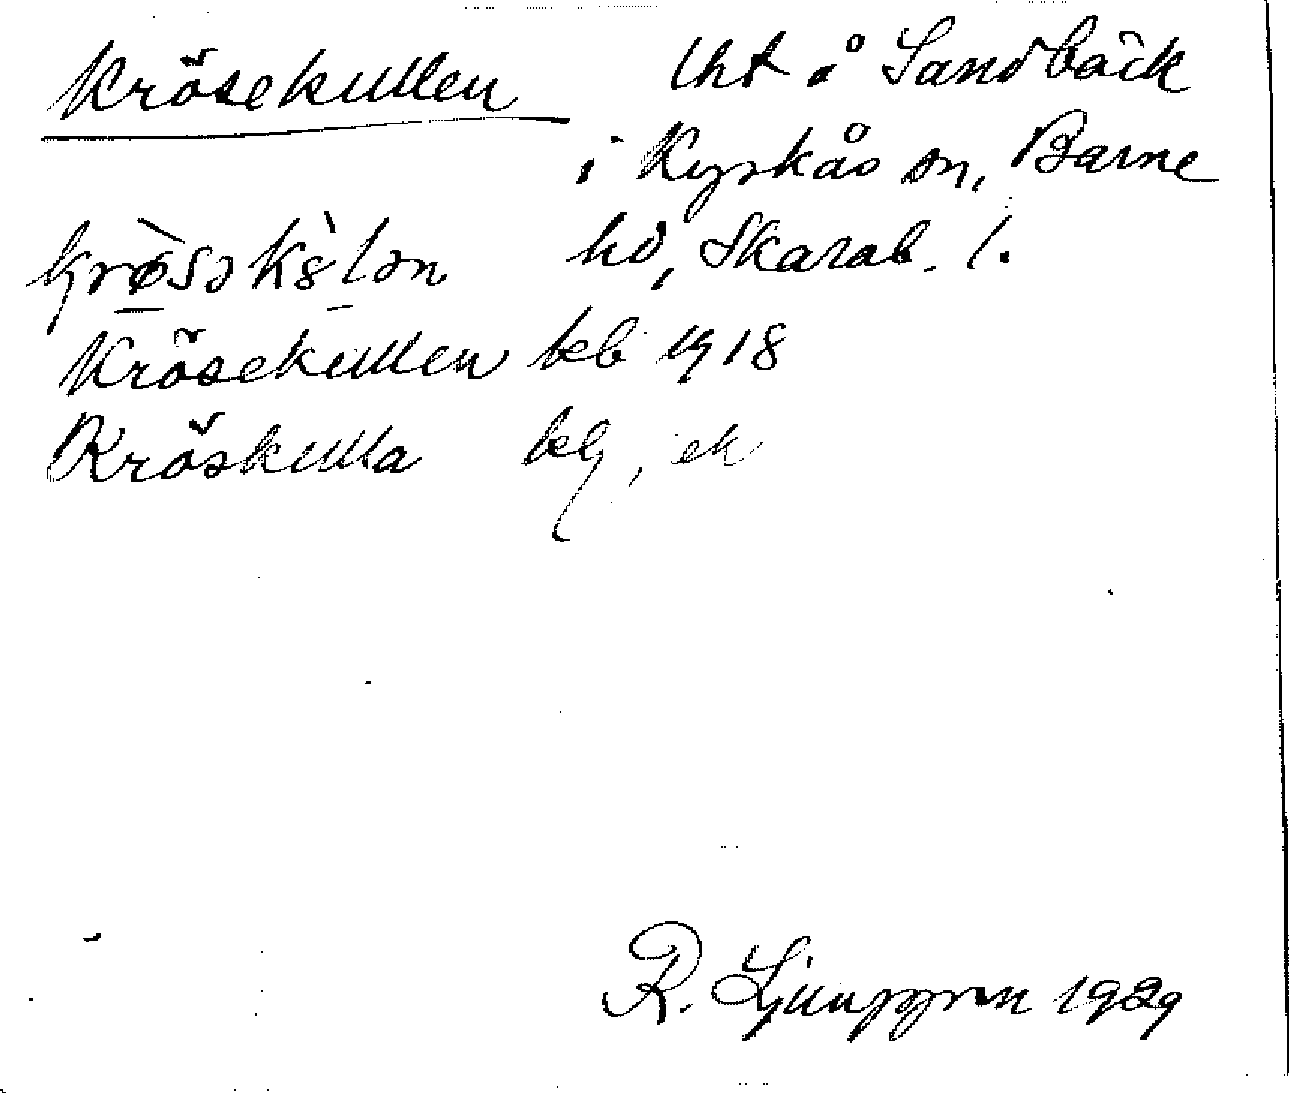 Krösekullen lht å Sandbäck
i Kyrkås sn, Barne
hd, Skarab. l.
Krösekullen kb 1918
Kröskulla
R. Ljunggren 1929